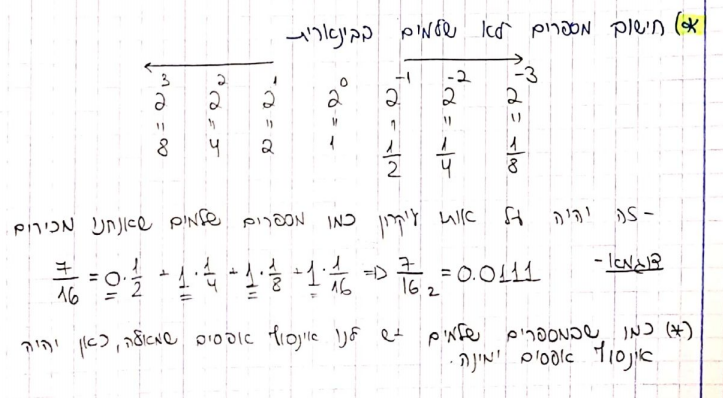 *) חישוב מספרים לא שלמים בבינארית
2³ 2² 2¹ 2⁰ 2⁻¹ 2⁻² 2⁻³
" " " " " " "
8 4 2 1 1/2 1/4 1/8
- זה יהיה על אותו עיקרון כמו מספרים שלמים שאנחנו מכירים
דוגמא -
7/16 = 0·1/2 + 1·1/4 + 1·1/8 + 1·1/16 => 7/16₂ = 0.0111
(*) כמו שבמספרים שלמים יש לנו אינסוף אפסים שמאלה, כאן יהיה
אינסוף אפסים ימינה.